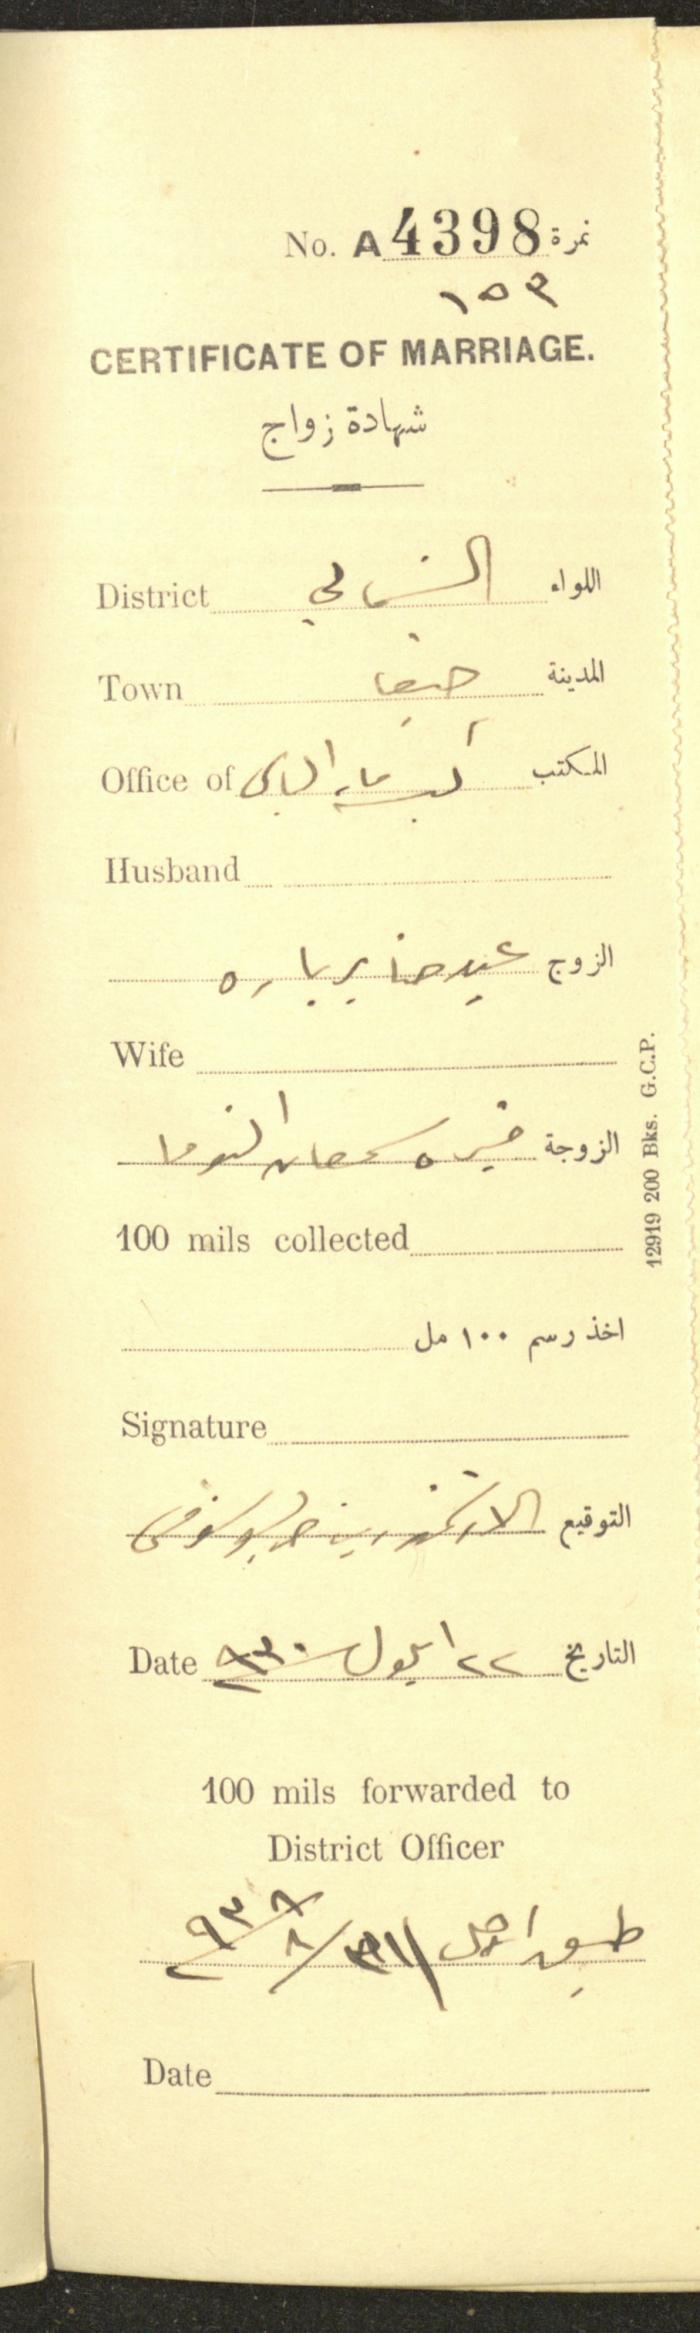 No. A 4398 نمرة
١٥٣
CERTIFICATE OF MARRIAGE.
شهادة زواج
District الشمالي اللواء
Town حيفا المدينة
Office of المكتب
Husband
الزوج عيد حنا بربارة
Wife
الزوجة سمعان
100 mils collected
اخذ رسم ١٠٠ مل
Signature
التوقيع
Date ٢٢ ايلول ٩٣٠ التاريخ
100 mils forwarded to
District Officer
طبق الاصل
Date
12919 200 Bks. G.C.P.